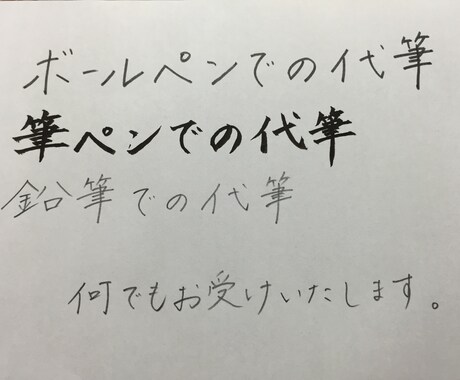 ボールペンでの代筆
筆ペンでの代筆
鉛筆での代筆
何でもお受けいたします。